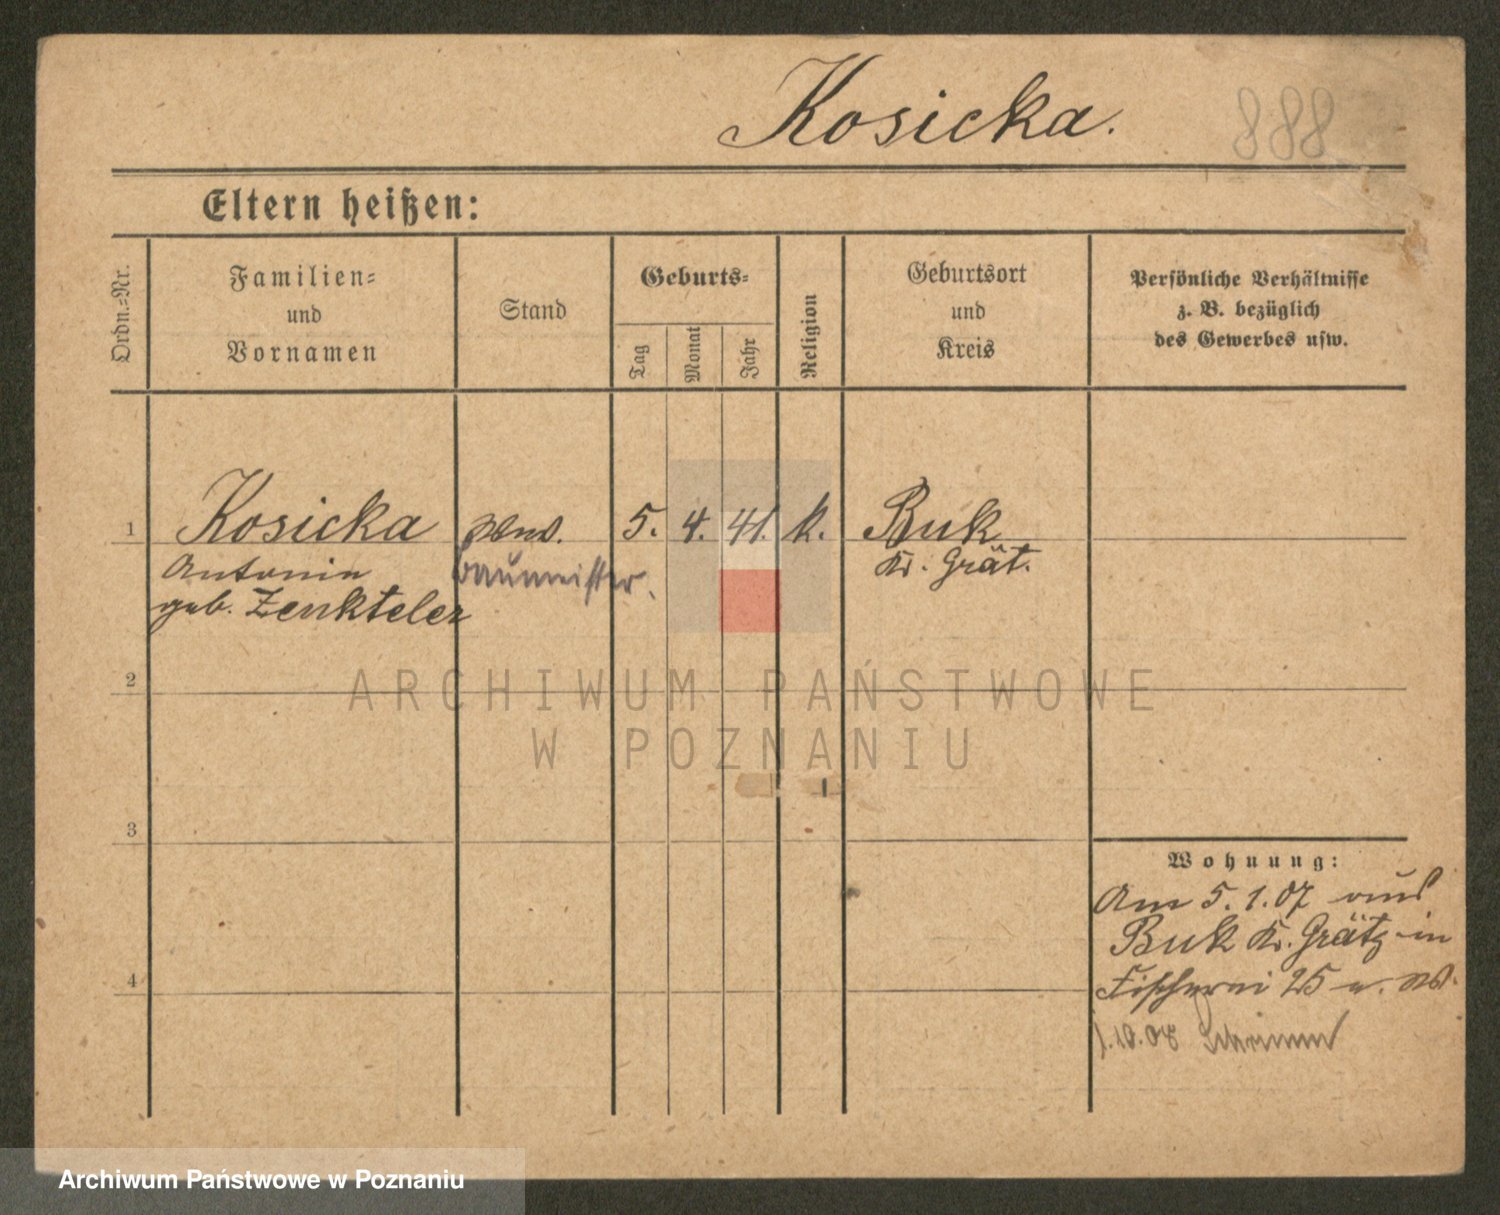 Kosicka.
888
Eltern heißen:
Ordn.-Nr.
Familien-
und
Vornamen
Stand
Geburts-
Tag
Monat
Jahr
Religion
Geburtsort
und
Kreis
Persönliche Verhältnisse
z. B. bezüglich
des Gewerbes usw.
1 Kosicka 5. 4. 41. k. Buk
Antonie Baumeister. Kr. Grät.
geb. Zenkteler
2
ARCHIWUM PAŃSTWOWE
W POZNANIU
3
Wohnung:
Am 5.1.07 aus
Buk Kr. Grätz in
4 Fischerei 25
1.10.08 Schrimm
Archiwum Państwowe w Poznaniu